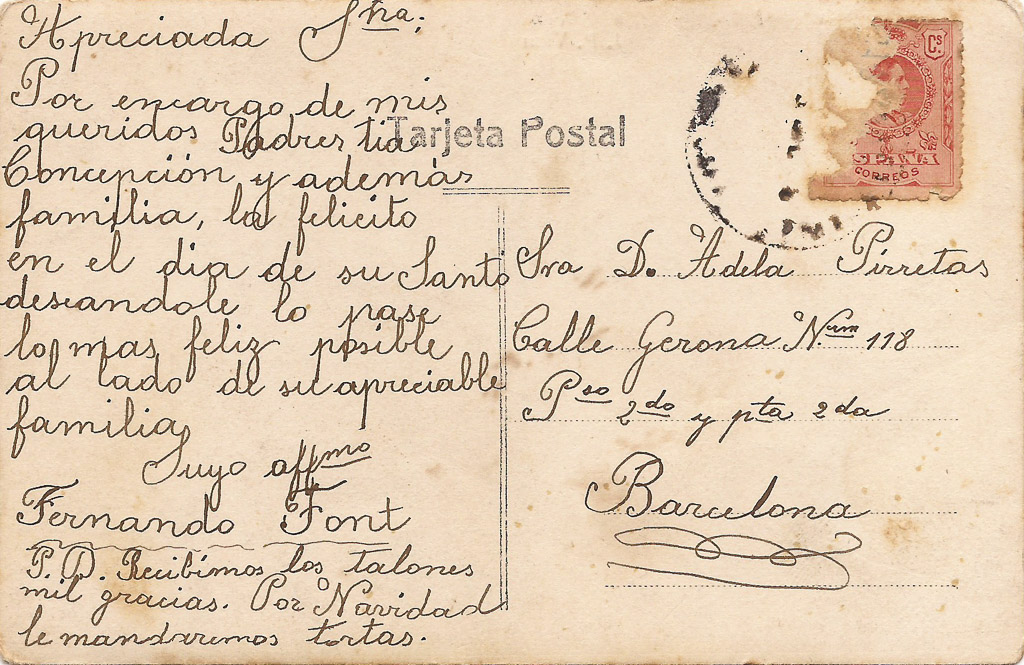 Apreciada Sña:
Por encargo de mis
queridos Padres tia
Concepción y además
familia, la felicito
en el dia de su Santo
deseandole lo pase
lo mas feliz posible
al lado de su apreciable
familia
Suyo affmo
Fernando Font
P. D. Recibimos los talones
mil gracias. Por Navidad
le mandaremos tortas.
Tarjeta Postal
Cs
ESPAÑA
CORREOS
Sra D. Adela Pirretas
Calle Gerona Núm 118
Pso 2do y pta 2da
Barcelona